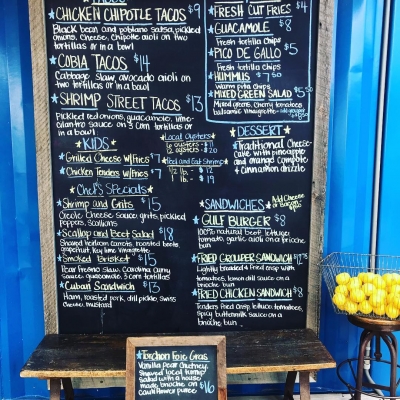 TACOS
CHICKEN CHIPOTLE TACOS $9
Black bean and poblano salsa, pickled
onions, Cheese, Chipotle aioli on two
tortillas or in a bowl
COBIA TACOS $14
Cabbage Slaw, avocado aioli on
two tortillas or in a bowl
SHRIMP STREET TACOS $13
Pickled red onions, guacamole, lime-
cilantro sauce on 3 corn tortillas or
in a bowl
KIDS
Grilled Cheese w/Fries $7
Chicken Tenders w/Fries $7
Chef's Specials
Shrimp and Grits $15
Creole Cheese Sauce, grits, pickled
peppers, Scallions
Scallop and Beet Salad $18
Shaved heirloom carrots, roasted beets,
grapefruit, Key lime Vinaigrette
Smoked Brisket $15
Pear Fresno Slaw, Carolina Gold
Sauce, guacamole, 3 corn tortillas
Cuban Sandwich $13
Ham, roasted pork, dill pickle, Swiss
Cheese, mustard
FRESH CUT FRIES $4
GUACAMOLE $8
Fresh tortilla Chips
PICO DE GALLO $5
Fresh tortilla Chips
HUMMUS $7.50
Warm pita Chips
MIXED GREEN SALAD $5.50
Mixed greens, Cherry tomatoes,
balsamic vinaigrette
Local Oysters
6 oysters $11
12 oysters $20
Peel and Eat Shrimp
1/2 lb. - $12
1 lb. - $19
DESSERT
Traditional Cheese-
cake with pineapple
and orange compote
+ cinnamon drizzle
SANDWICHES
Add Cheese
or Bacon
GULF BURGER $8
100% natural beef, lettuce,
tomato, garlic aioli on a brioche
bun
FRIED GROUPER SANDWICH
Lightly breaded & fried crisp with
tomatoes, lemon dill sauce on a
brioche bun
FRIED CHICKEN SANDWICH $8
Tenders fried crisp, lettuce, tomatoes,
Spicy buttermilk sauce on a
brioche bun
Torchon Foie Gras
Vanilla pear Chutney,
Shaved local turnip
salad with a house
made brioche on
Cauliflower puree $16